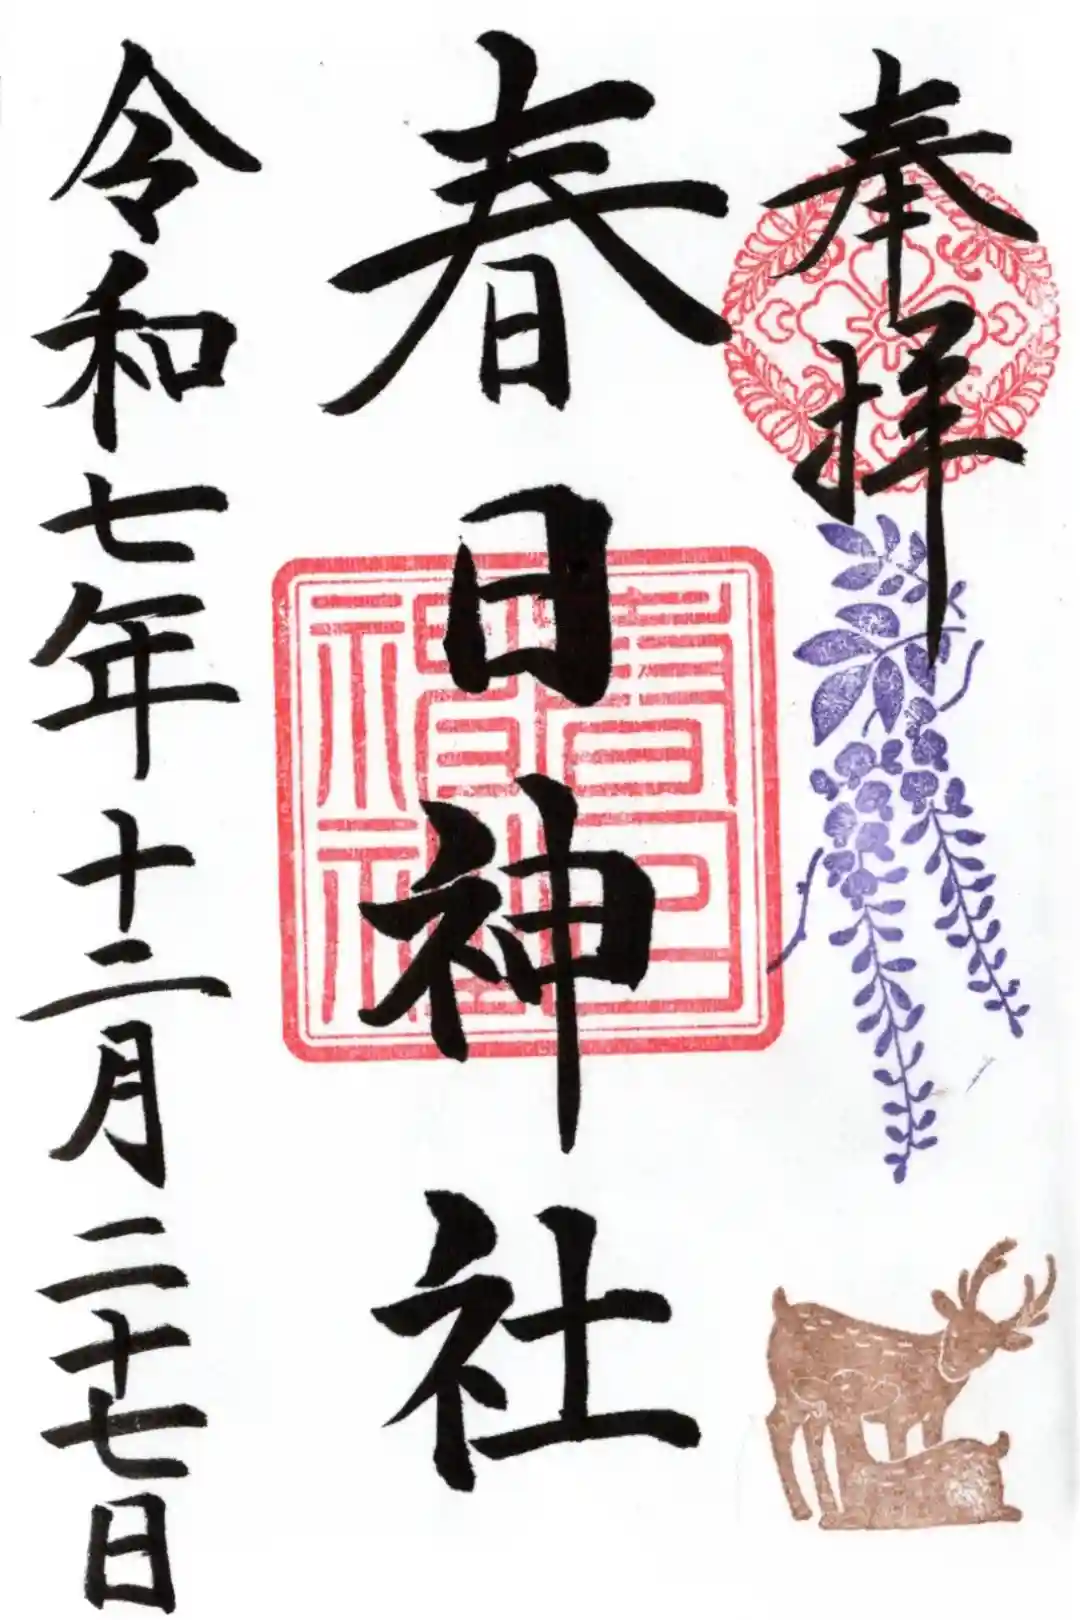 奉拝
春日神社
春日神社
令和七年十二月二十七日